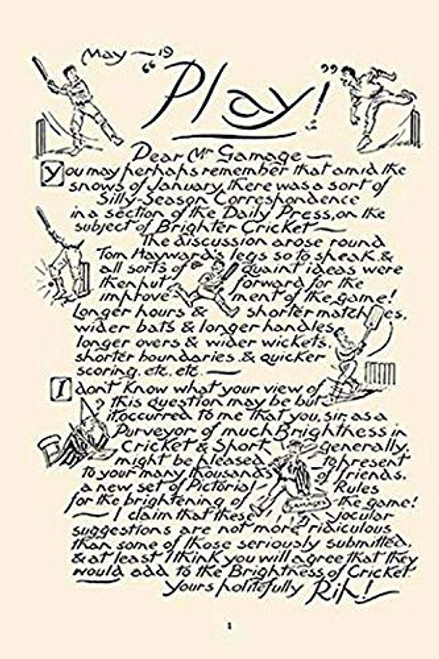 May — 19
"Play!"
Dear Mr Gamage —
You may perhaps remember that amid the
snows of January, there was a sort of
Silly-Season Correspondence
in a section of the Daily Press, on the
subject of Brighter Cricket —
The discussion arose round
Tom Hayward's legs so to speak &
all sorts of quaint ideas were
then put forward for the
improvement of the game!
Longer hours & shorter matches,
wider bats & longer handles,
longer overs & wider wickets,
shorter boundaries & quicker
scoring, etc. etc. —
I don't know what your view of
this question may be but
it occurred to me that you, sir, as a
Purveyor of much Brightness in
Cricket & Sport generally,
might be pleased to present
to your many thousands of friends,
a new set of Pictorial Rules
for the brightening of the game!
— I claim that these jocular
suggestions are not more ridiculous
than some of those seriously submitted,
& at least I think you will agree that they
would add to the Brightness of Cricket.
Yours politefully Rip!
1